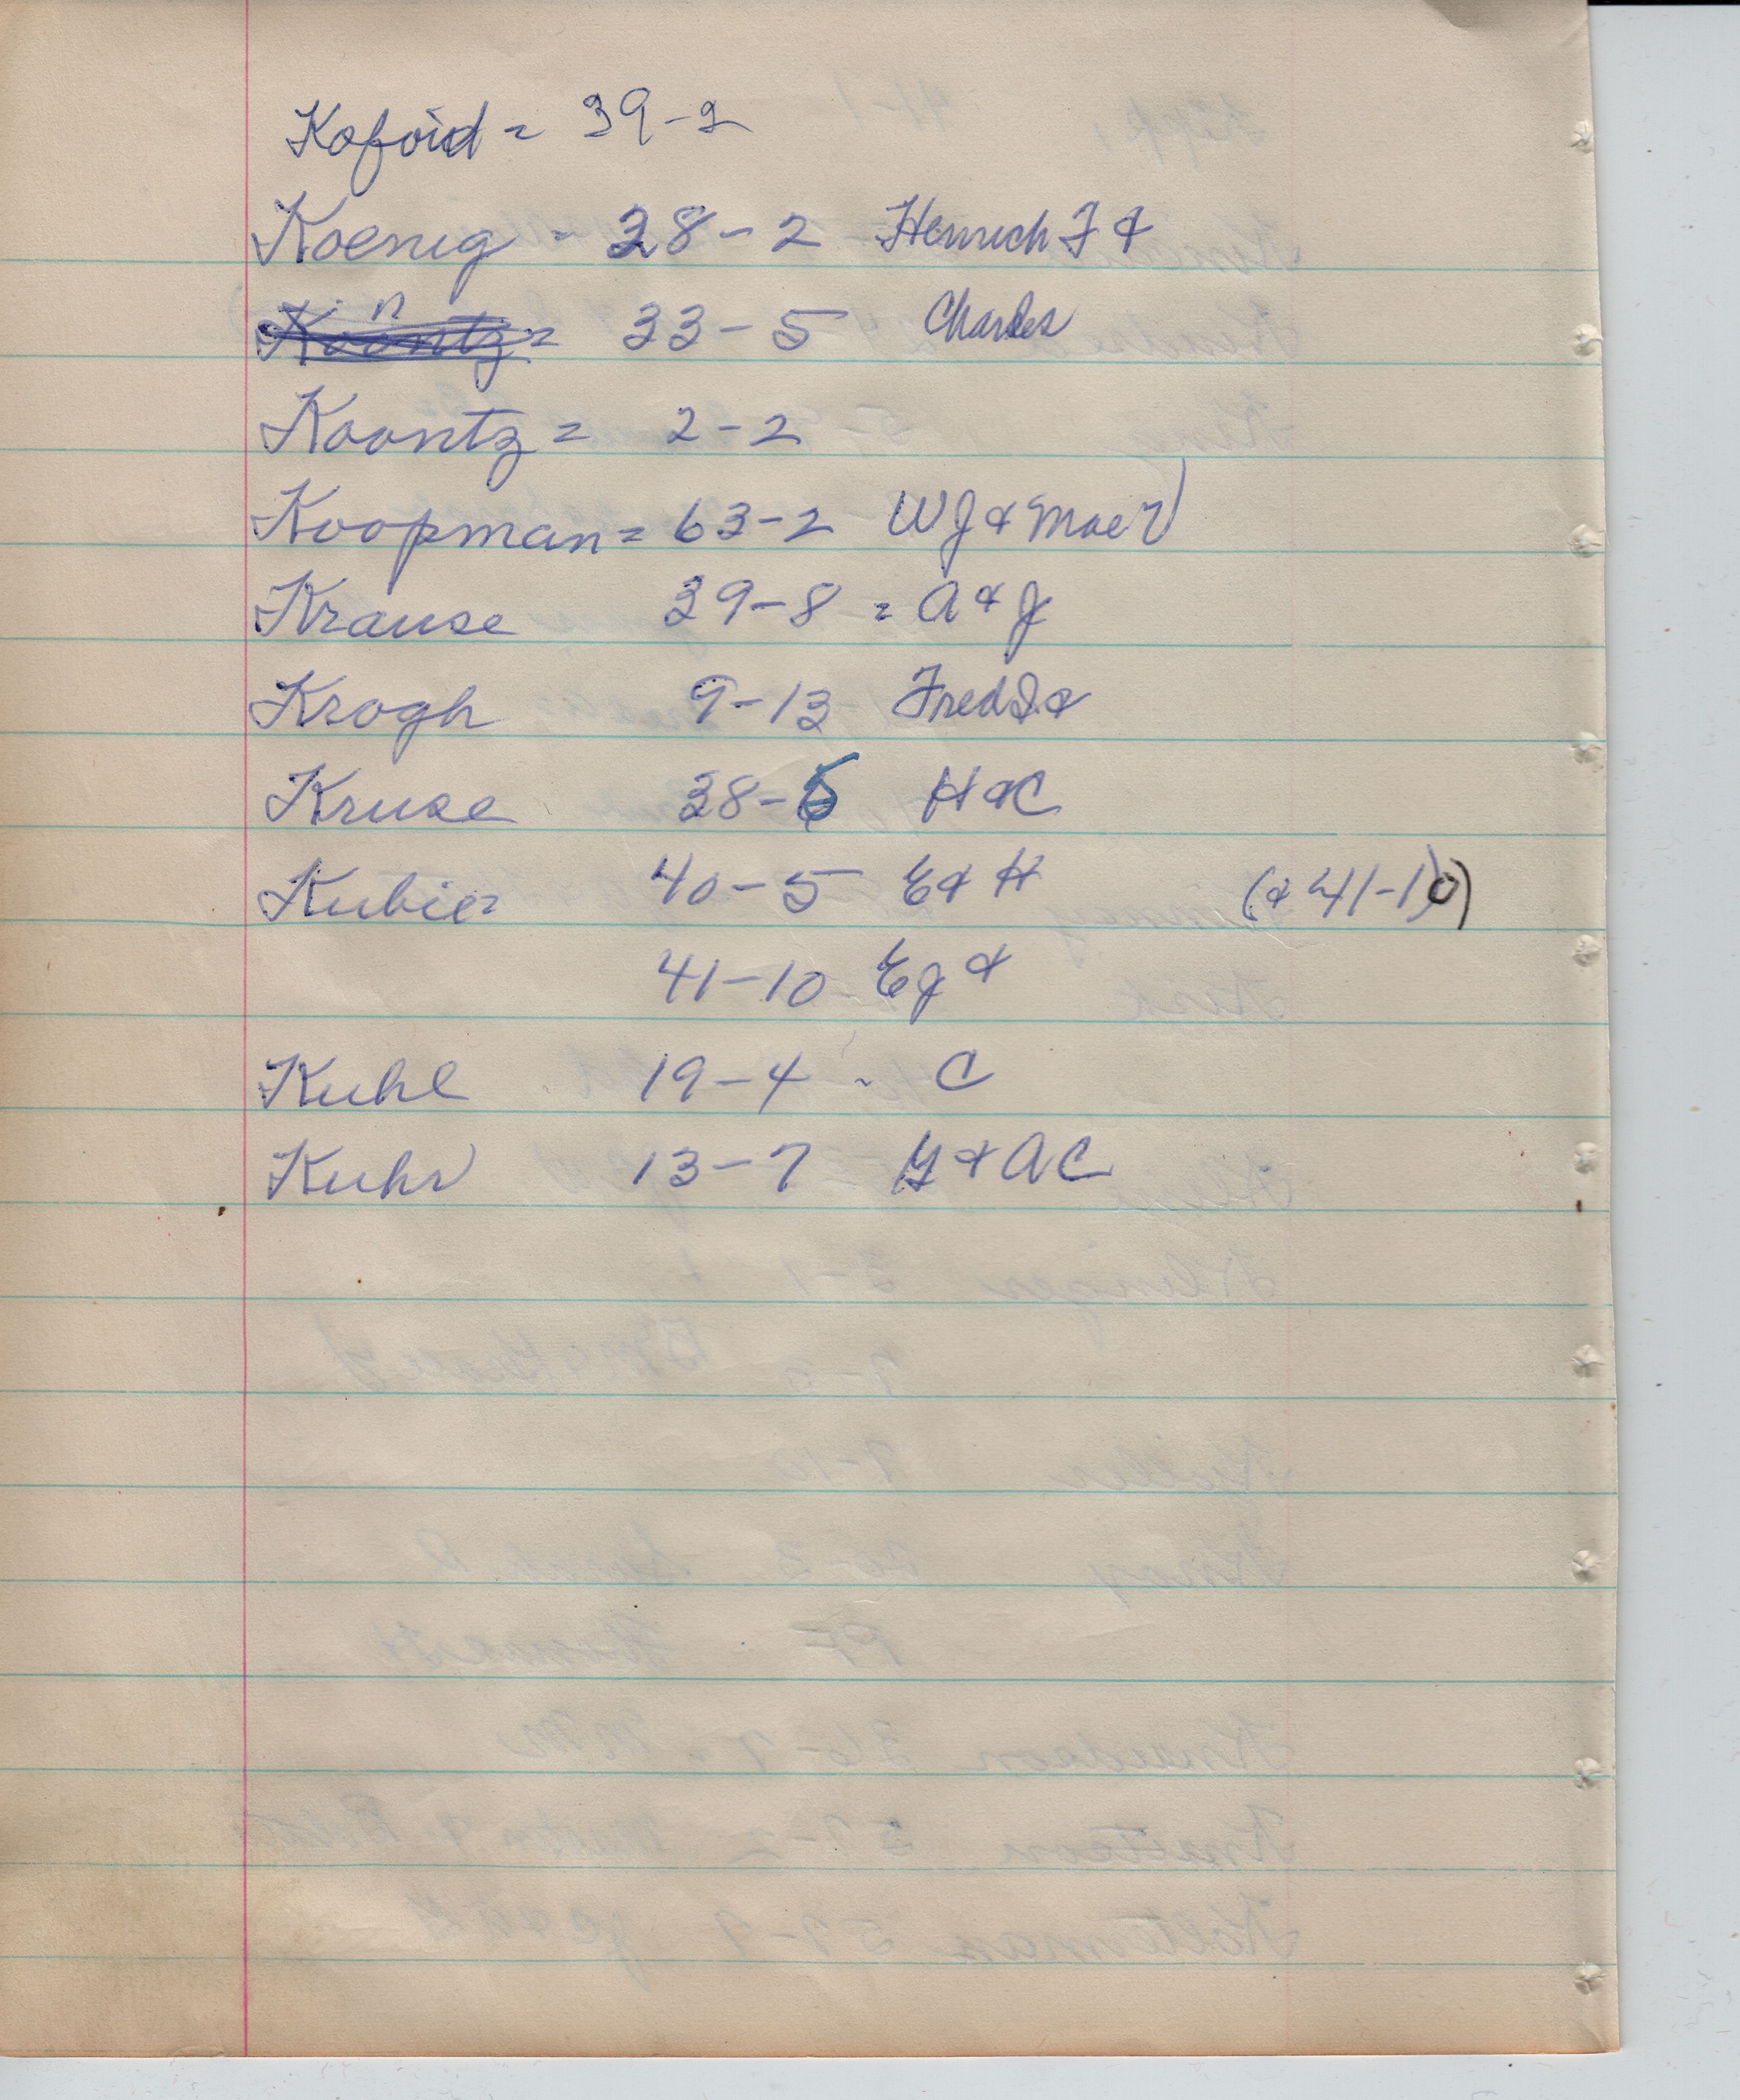 Kofoid = 39-2
Koenig - 38-2 Henrich F &
Koontz = 33-5 Charles
Koontz = 2-2
Koopman = 63-2 WJ & Mae V
Krause 39-8 = A & J
Krogh 9-13 Fred S. &
Kruse 38-6 H & C
Kubie = 40-5 E & H (& 41-10)
41-10 EJ &
Kuhl 19-4 - C
Kuhr 13-7 & AC